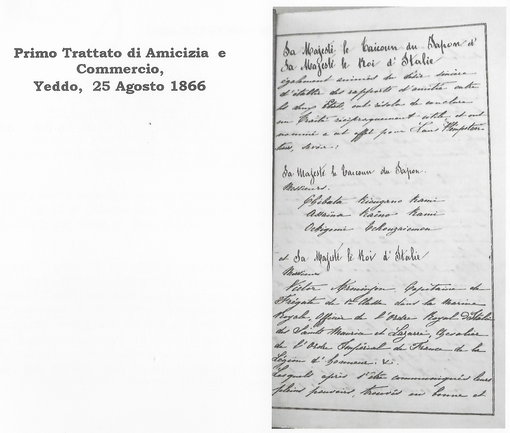 Primo Trattato di Amicizia e
Commercio,
Yeddo, 25 Agosto 1866
Sa Majesté le Taicoun du Japon et
Sa Majesté le Roi d'Italie
également animés du désir sincère
d'établir des rapports d'amitié entre
les deux Etats, ont résolu de conclure
un Traité réciproquement utile et ont
nommé à cet effet pour Leurs Plénipoten-
tiaires, savoir:
Sa Majesté le Taicoun du Japon
Messieurs
Chibata Kami
Assaina Kami
et Sa Majesté le Roi d'Italie
Monsieur
Victor Arminjon, Capitaine de
Frégate de 1re Classe dans la Marine
Royale, Officier de l'Ordre Royal
des Saints Maurice et Lazare, Chevalier
de l'Ordre Impérial de France de la
Légion d'honneur &.
Lesquels après s'être communiqués leurs
pleins pouvoirs, trouvés en bonne et